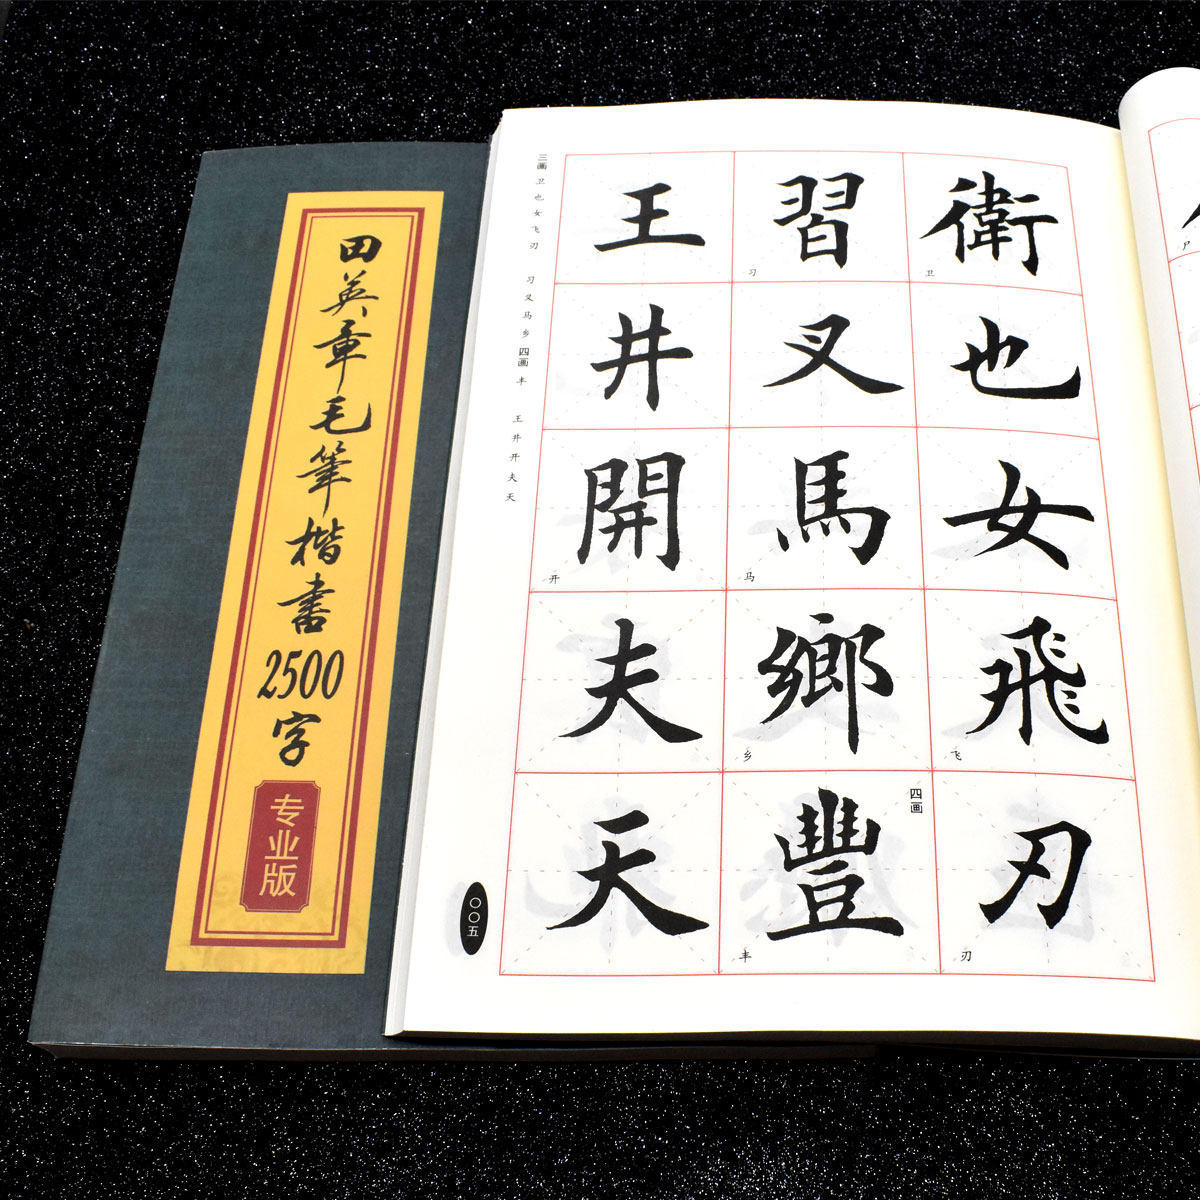 田英章毛筆楷書2500字
专业版
三画 卫也女飞刃 习叉马乡 四画 丰 王井开夫天
衛 卫
也
女
飛 飞
刃 刃
習 习
叉
馬 马
鄉 乡
四画
豐 丰
王
井
開 开
夫
天
〇〇五